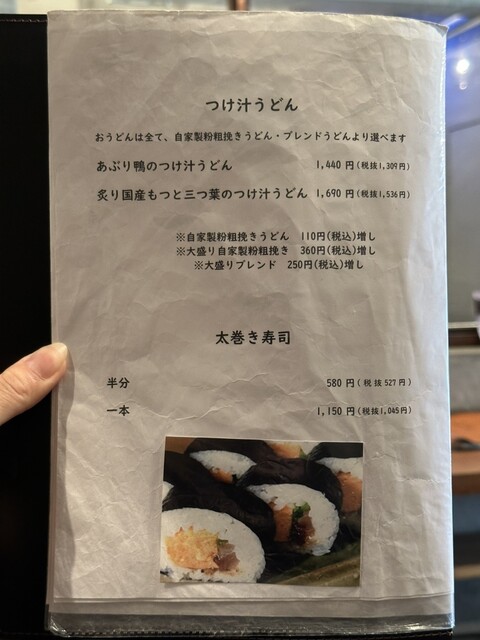 つけ汁うどん
おうどんは全て、自家製粉粗挽きうどん・ブレンドうどんより選べます
あぶり鴨のつけ汁うどん 1,440 円(税抜1,309円)
炙り国産もつと三つ葉のつけ汁うどん 1,690 円(税抜1,536円)
※自家製粉粗挽きうどん 110円(税込)増し
※大盛り自家製粉粗挽き 360円(税込)増し
※大盛りブレンド 250円(税込)増し
太巻き寿司
半分 580 円(税抜527円)
一本 1,150 円(税抜1,045円)